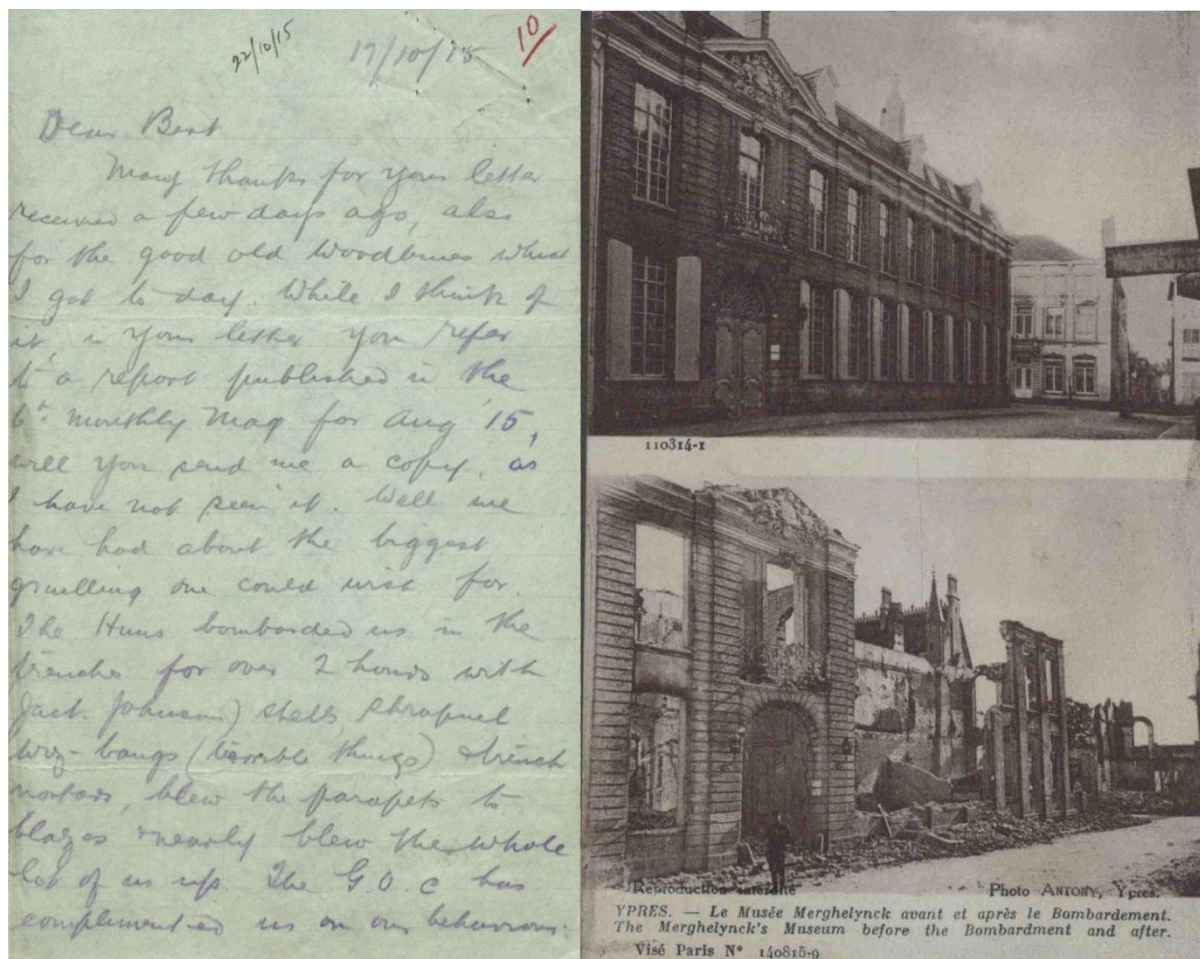 22/10/15
19/10/15
10
Dear Bert
Many thanks for your letter
received a few days ago, also
for the good old Woodbines which
I got to day. While I think of
it, in your letter you refer
to a report published in the
monthly Mag for Aug 15,
will you send me a copy, as
I have not seen it. Well we
have had about the biggest
gruelling one could wish for.
The Huns bombarded us in the
trenches for over 2 hours with
Jack Johnson) shells, shrapnel
wiz-bangs (terrible things) & trench
mortars, blew the parapets to
blazes & nearly blew the whole
lot of us up. The G.O.C has
complimented us on our behaviour.
110314-1
Reproduction interdite
Photo ANTONY, Ypres.
YPRES. — Le Musée Merghelynck avant et après le Bombardement.
The Merghelynck's Museum before the Bombardment and after.
Visé Paris N° 140815-9